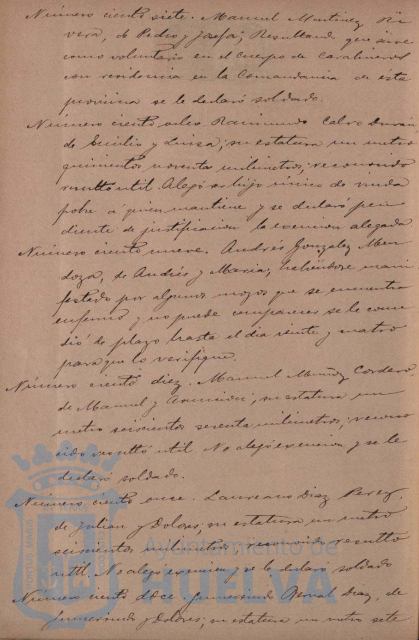 Número ciento siete. Manuel Martinez Ri
vera, de Pedro y Josefa; Resultando que sirve
como voluntario en el cuerpo de Carabineros
con residencia en la Comandancia de esta
provincia se le declaró soldado.
Número ciento ocho Raimundo Calvo Durán
de Emilio y Luisa; su estatura un metro
quinientos noventa milimetros; reconocido
resultó util. Alegó ser hijo único de viuda
pobre á quien mantiene y se declaró pen
diente de justificacion la exencion alegada
Número ciento nueve. Andrés Gonzalez Men
doza, de Andrés y Maria; habiéndose mani
festado por algunos mozos que se encuentra
enfermo y no puede comparecer se le conce
dió de plazo hasta el dia veinte y cuatro
para que lo verifique.
Número ciento diez. Manuel Muñoz Cordero,
de Manuel y Asuncion; su estatura un
metro seiscientos sesenta milimetros; recono
cido resultó util. No alegó exencion y se le
declaró soldado.
Número ciento once. Laureano Diaz Perez,
de Julian y Dolores; su estatura un metro
seiscientos milimetros; reconocido resultó
util. No alegó exencion y se le declaró soldado
Número ciento doce. Gumersindo Bernal Diaz, de
Gumersindo y Dolores; su estatura un metro sete
Ayuntamiento de
HUELVA